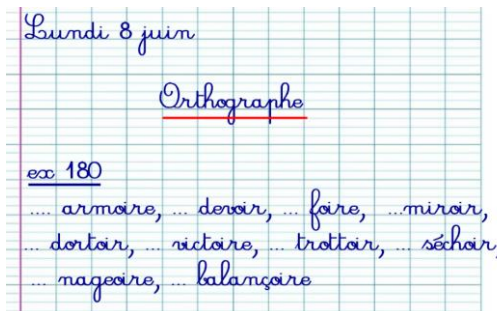 Lundi 8 juin
Orthographe
ex 180
.... armoire, ... devoir, ... foire, ...miroir,
... dortoir, ... victoire, ... trottoir, ... séchoir,
... nageoire, ... balançoire